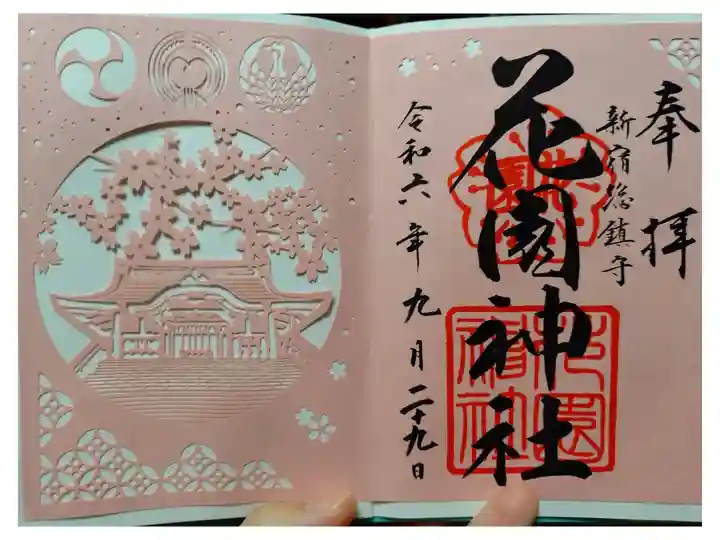 奉拝
新宿総鎮守
花園神社
令和六年九月二十九日
花園
神社